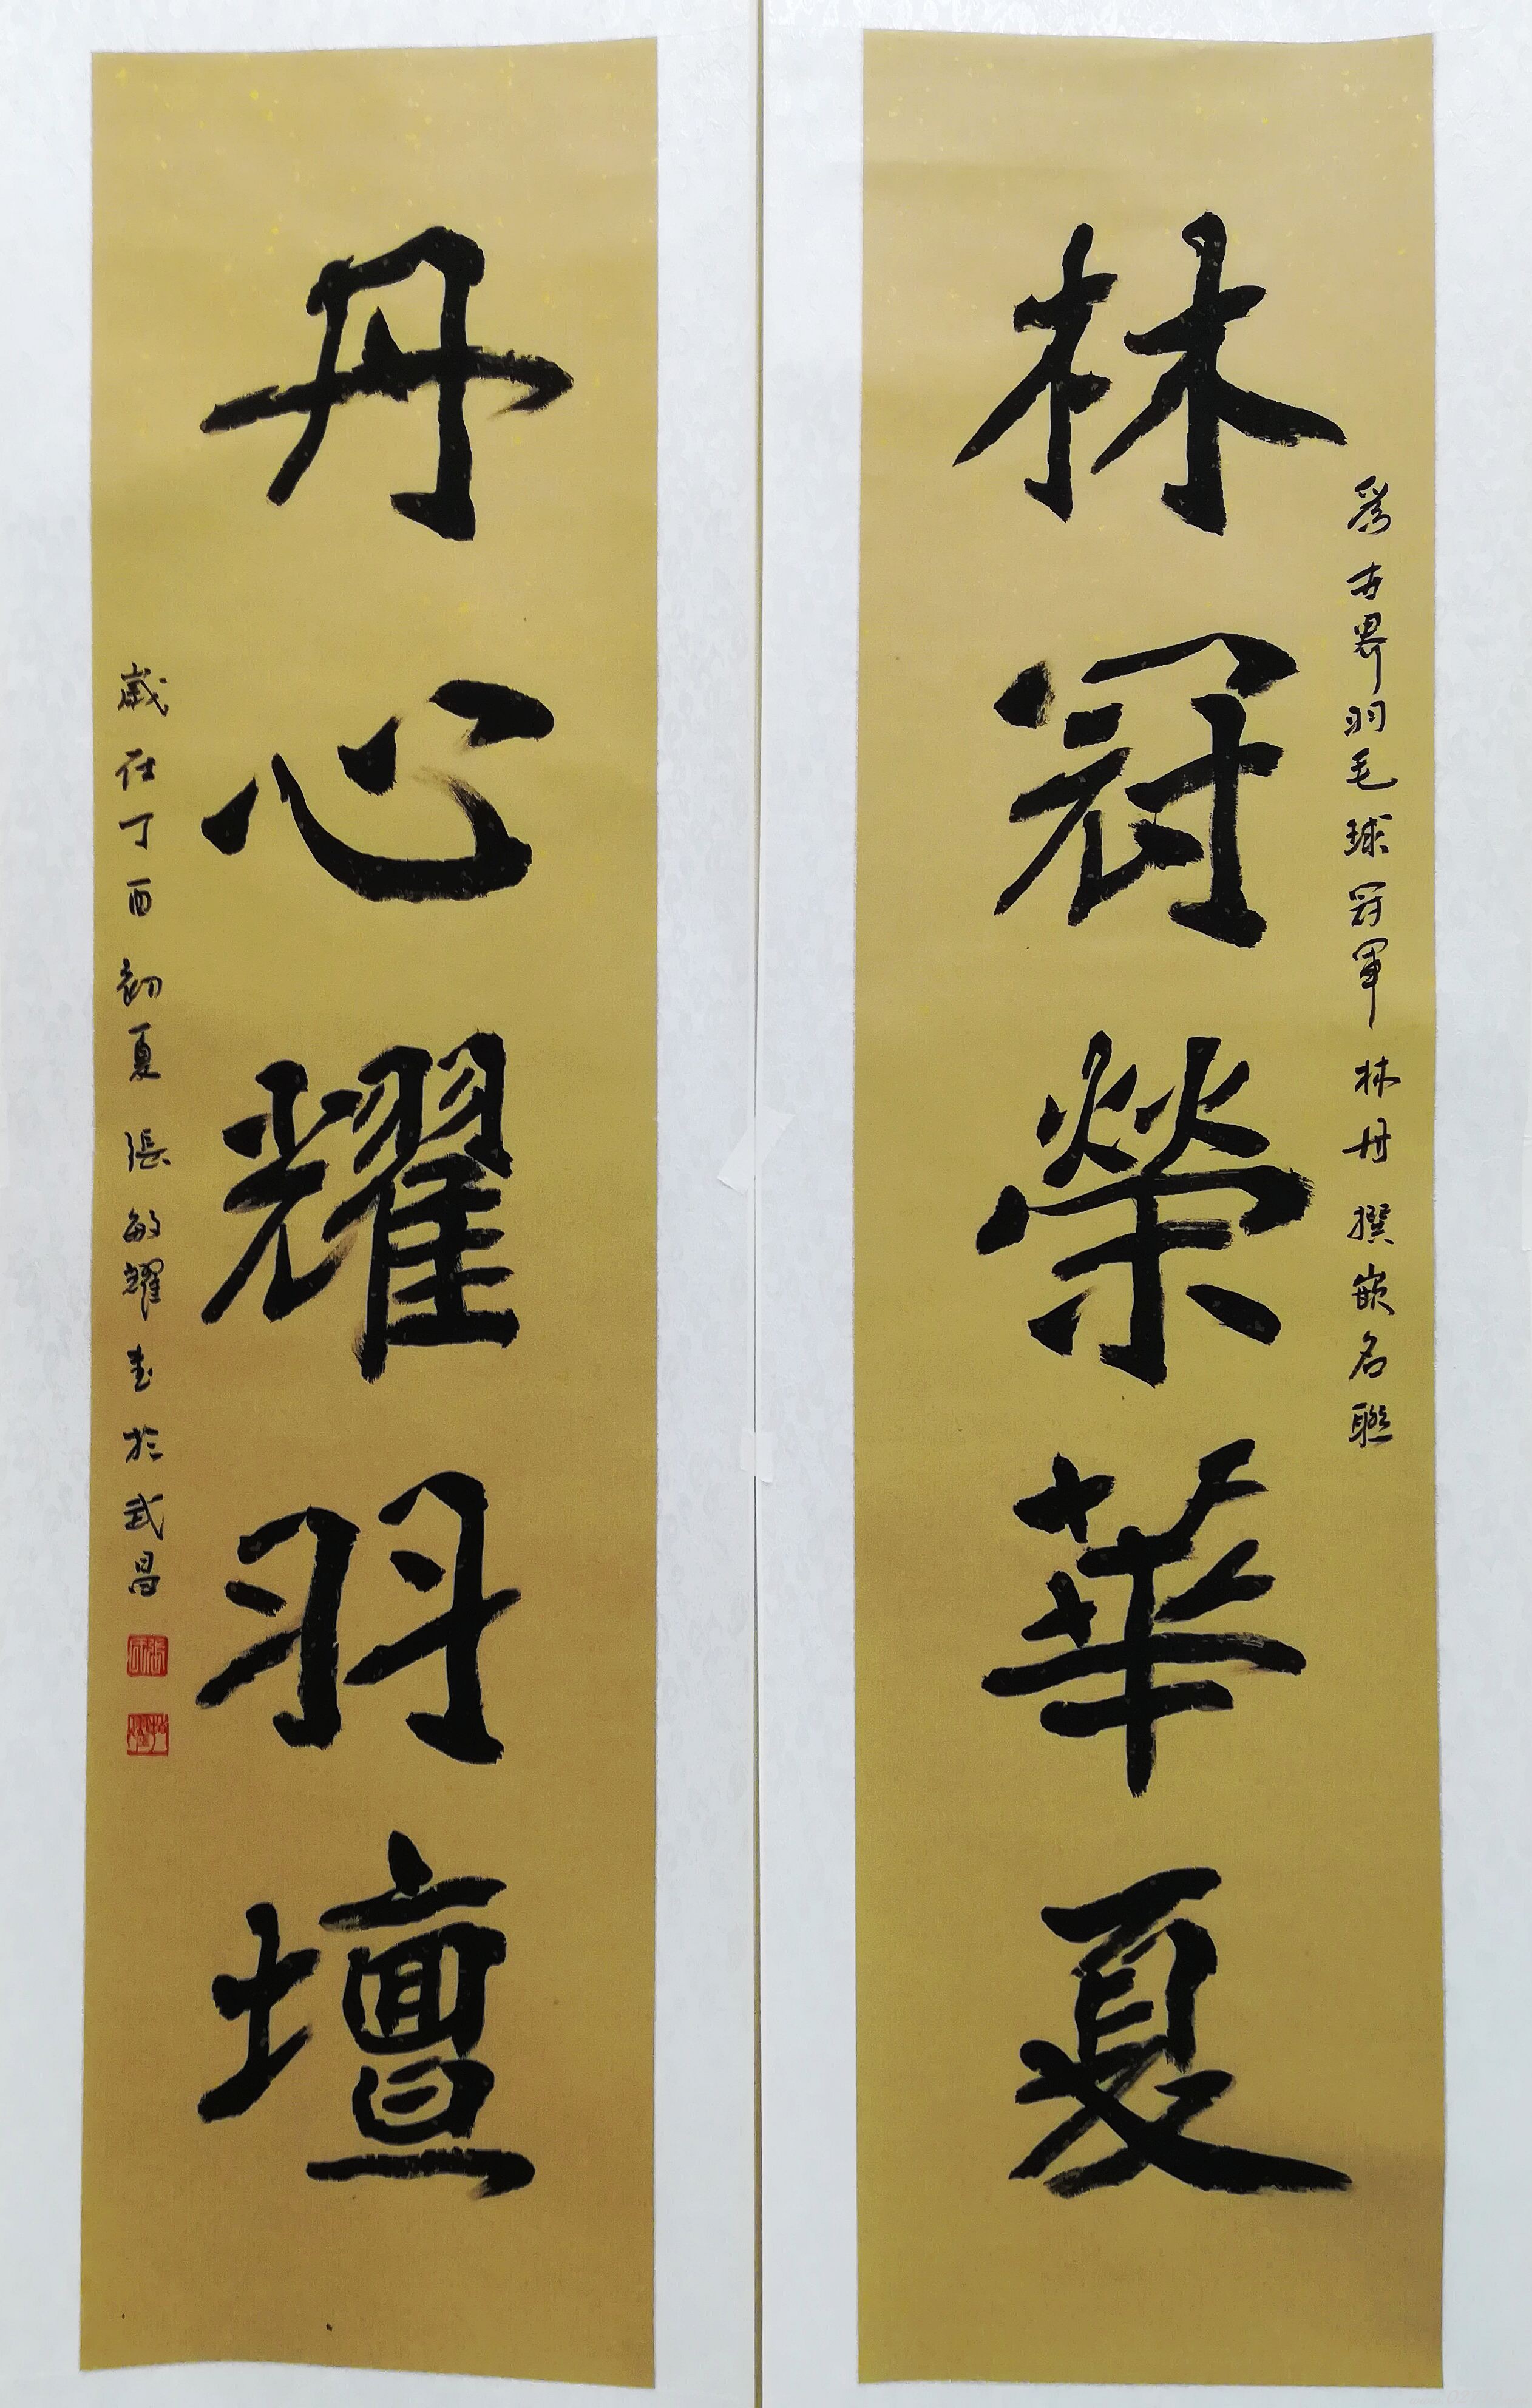 林冠榮華夏
爲世界羽毛球冠軍林丹撰嵌名聯
丹心耀羽壇
歲在丁酉初夏張敏耀書於武昌